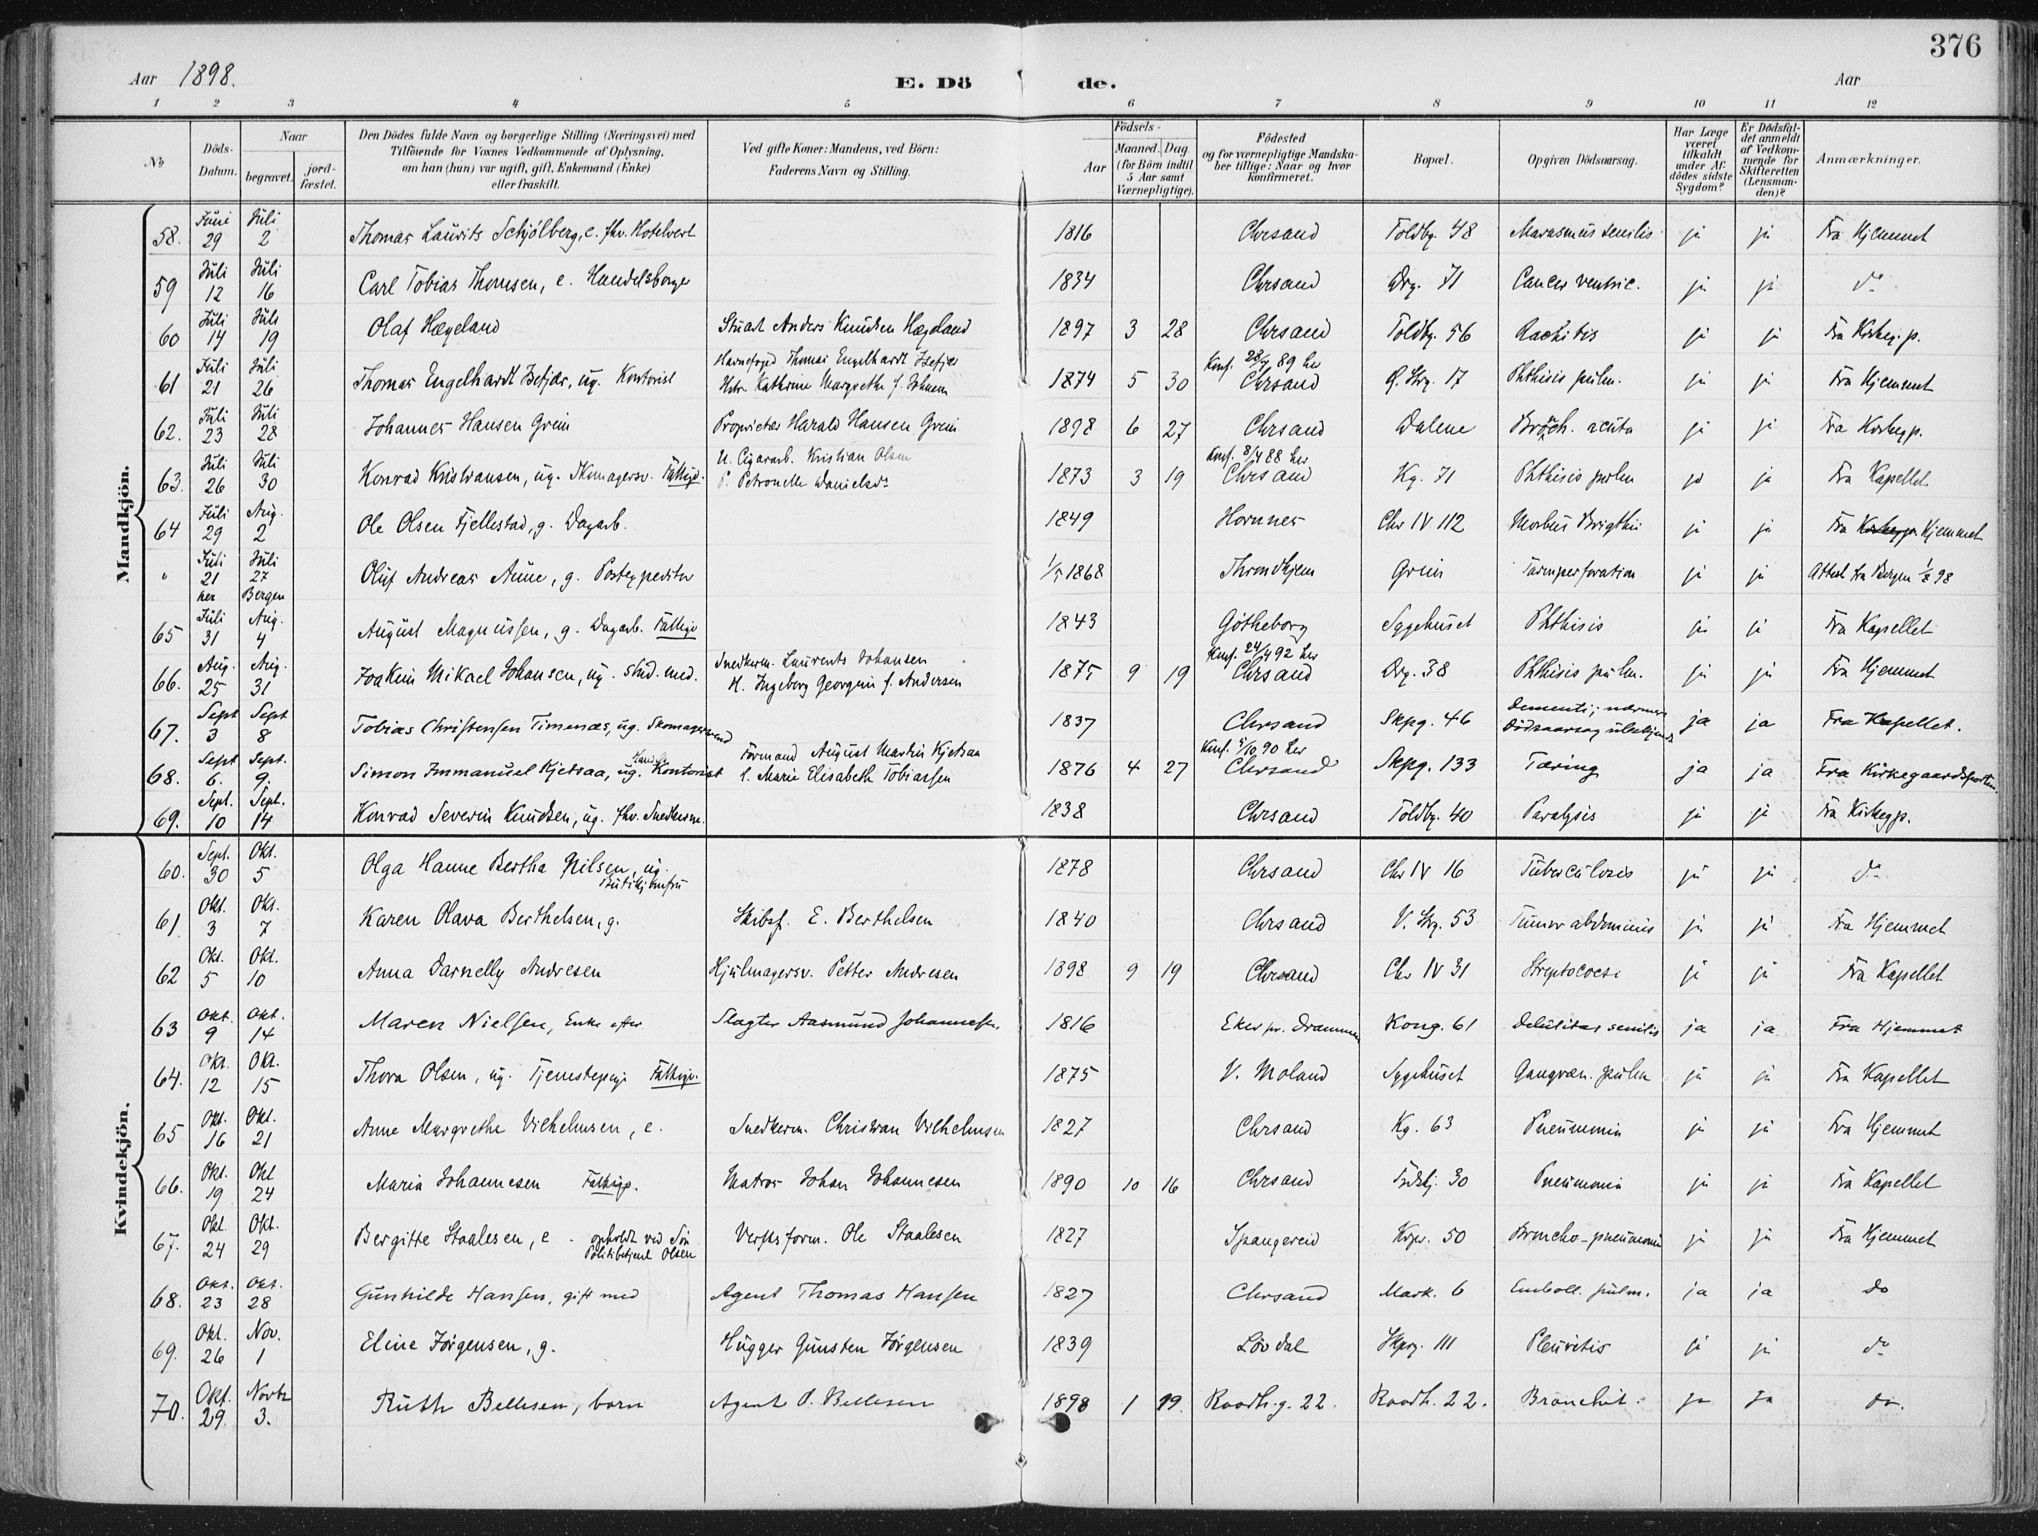 376
Aar 1898. E. Dö de. Aar
1 2 3 4 5 6 7 8 9 10 11 12
No
Döds-Datum.
Naar begravet. jordfæstet.
Den Dödes fulde Navn og borgerlige Stilling (Næringsvei) med Tilföiende for Voxnes Vedkommende af Oplysning, om han (hun) var ugift, gift, Enkemand (Enke) eller fraskilt.
Ved gifte Koner: Mandens, ved Börn: Faderens Navn og Stilling.
Födsels- Aar Maaned. Dag (for Börn indtil 5 Aar samt Værnepligtige).
Födested og for værnepligtige Mandskaber tillige: Naar og hvor konfirmeret.
Bopæl.
Opgiven Dödsaarsag.
Har Læge været tilkaldt under Afdödes sidste Sygdom?
Er Dödsfaldet anmeldt af Vedkommende for Skifteretten (Lensmanden)?
Anmærkninger.
Mandkjön.
58. Juni 29 Juli 2 Thomas Laurits Schjølberg, e. fhv. Hotelvert 1816 Chrsand Toldbg. 48 Marasmus senilis ja ja Fra Hjemmet
59 Juli 12 Juli 16 Carl Tobias Thomsen, e. Handelsborger 1834 Chrsand Drg. 71 Cancer ventric. ja ja do
60 Juli 14 Juli 19 Olaf Hægeland Stuart Anders Knudsen Hægeland 1897 3 28 Chrsand Toldbg. 56 Rachitis ja ja Fra Kirkeg.p.
61 Juli 21 Juli 26 Thomas Engelhardt Isefjær, ug. Kontorist Havnefoged Thomas Engelhardt Isefjær Hstr. Kathrine Margrethe f. 1874 5 30 Konf. 28/4 89 her Chrsand Ø. Strg. 17 Phthisis pulm. ja ja Fra Hjemmet
62. Juli 23 Juli 28 Johannes Hansen Greim Proprietær Harald Hansen Greim 1898 6 27 Chrsand Dalene Bronch. acuta ja ja Fra Kirkegp.
63. Juli 26 Juli 30 Konrad Kristiansen, ug. Skomagersv. Fattigv. U. Cigararb. Kristian Olsen P. Petronelle Danielsdr 1873 3 19 Konf. 8/4 88 her Chrsand Kg. 71 Phthisis pulm ja ja Fra Kapellet
64 Juli 29 Aug. 2 Ole Olsen Fjellestad, g. Dagarb. 1849 Hornnes Chr IV 112 Morbus Brigthii ja ja Fra Kirkegp. Hjemmet
" Juli 21 her Juli 27 Bergen Oluf Andreas Aune, g. Postexpeditør 1/5 1868 Throndhjem Greim Tarmperforation ja ja Attest fra Bergen 1/8 98
65 Juli 31 Aug. 4 August Magnussen, g. Dagarb. Fattigv 1843 Götheborg Sygehuset Phthisis ja ja Fra Kapellet
66. Aug. 25 Aug. 31 Joakim Mikael Johansen, ug. stud. med. Snedkerm. Laurents Johansen H. Ingeborg Georgine f. Andersen 1875 9 19 Konf. 24/4 92 her Chrsand Drg. 38 Phthisis pulm. ja ja Fra Hjemmet
67. Sept 3 Sept 8 Tobias Christensen Timenæs, ug. Skomagersvend 1837 Chrsand Skpg. 46 Dementi; nærmere Dödsaarsag ubekjendt ja ja Fra Kapellet.
68. Sept 6. Sept. 9. Simon Immanuel Kjetsaa, ug. Kontorist Formand August Martin Kjetsaa & Marie Elisabeth Tobiassen 1876 4 27 Konf. 5/10 90 her Chrsand Skpg. 133 Tæring ja ja Fra Kirkegaardsporten.
69. Sept. 10 Sept. 14 Konrad Severin Knudsen, ug. fhv. Snedkerm. 1838 Chrsand Toldbg. 40 Paralysis ja ja Fra Kirkegp.
Kvindekjön.
60. Sept. 30 Okt. 5 Olga Hanne Bertha Nilsen, ug. Butikjomfru 1878 Chrsand Chr IV 16 Tuberculosis ja ja do
61 Okt. 3 Okt. 7 Karen Olava Berthelsen, g. Skibsf. E. Berthelsen 1840 Chrsand V. Strg. 53 Tumor abdominis ja ja Fra Hjemmet
62 Okt. 5 Okt. 10 Anna Darnelly Andresen Hjulmagersv. Petter Andresen 1898 9 19 Chrsand Chr IV 31 Streptococsi ja ja Fra Kapellet
63 Okt. 9 Okt. 14 Maren Nielsen, Enke efter Slagter Aasmund Johannessen. 1816 Eker pr. Drammen Kong. 61 Debilitas senilis ja ja Fra Hjemmet
64. Okt. 12 Okt. 15 Thora Olsen, ug. Tjenestepige Fattigv. 1875 V. Moland Sygehuset Gangræn. pulm ja ja Fra Kapellet
65 Okt. 16 Okt. 21 Anne Margrethe Vilhelmsen, e. Snedkerm. Christian Vilhelmsen 1827 Chrsand Kg. 63 Pneumonia ja ja Fra Hjemmet
66. Okt. 19 Okt 24 Maria Johannesen Fattigp. Matros Johan Johannesen 1890 10 16 Chrsand 30 Pneumonia ja ja Fra Kapellet
67. Okt. 24 Okt. 29 Bergitte Staalesen, e - opholdt ved Søn Politibetjent Olsen Verftsform. Ole Staalesen 1827 Spangereid 50 Broncho-pneumonia ja ja Fra Hjemmet
68. Okt. 23 Okt. 28 Gunhilde Hansen, gift med Agent Thomas Hansen 1827 Chrsand Mark. 6 Emboll. pulm. ja ja do
69. Okt. 26 Nov. 1 Eline Jørgensen, g. Hugger Gunsten Jørgensen 1839 Lövdal Skpg. 111 Pleuritis ja ja do
70. Okt. 29. Novbr 3. Ruth Bellesen, barn Agent P. Bellesen 1898 1 19. Raadh.g. 22. Raadh. 22. Bronchit. ja ja do.